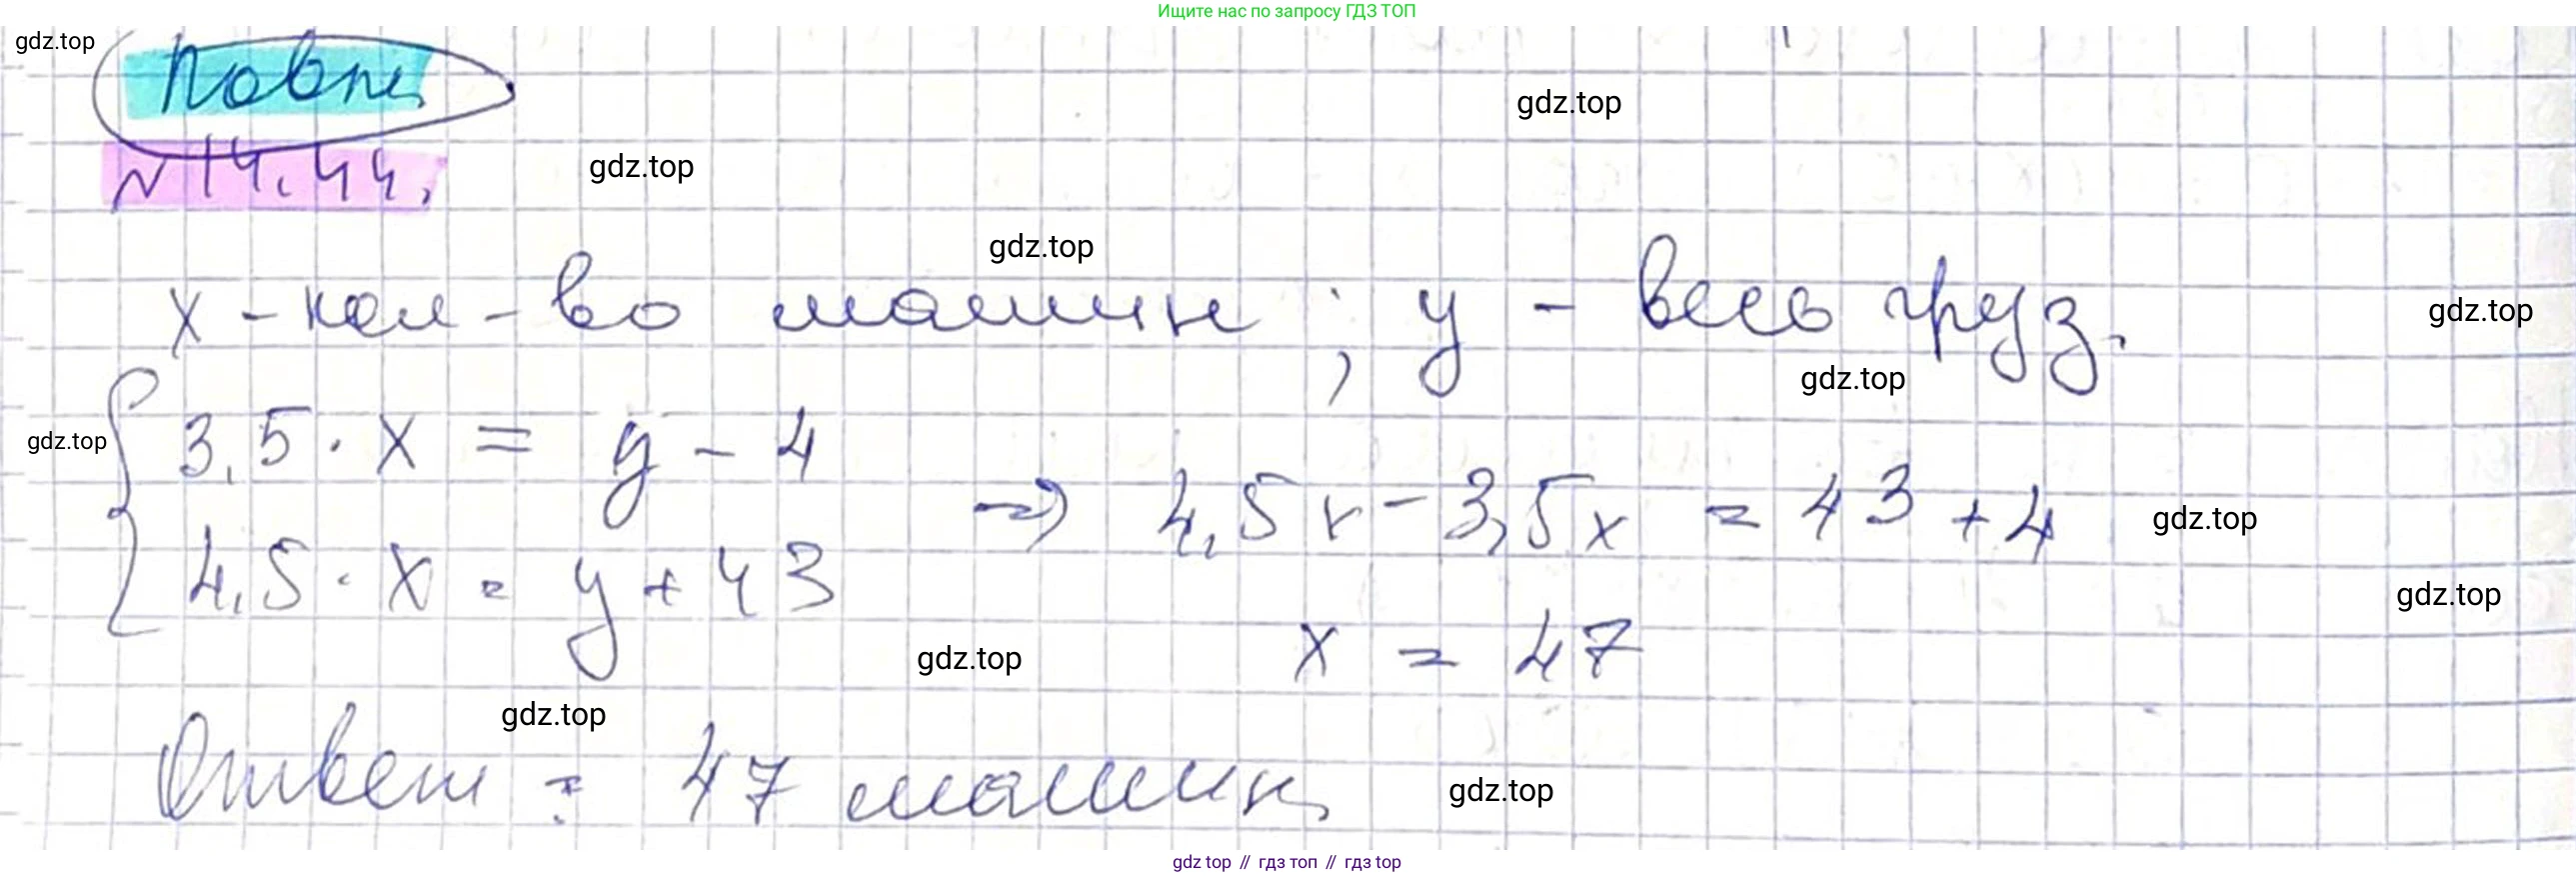 Ищите нас по запросу ГДЗ ТОП
gdz.top
Повт.
gdz.top
N 14.44.
gdz.top
gdz.top
x - кол-во машин ; y - весь груз.
gdz.top
gdz.top
gdz.top
3,5 · x = y - 4
4,5 · x = y + 43
⇒ 4,5x - 3,5x = 43 + 4
gdz.top
gdz.top
x = 47
gdz.top
gdz.top
Ответ: 47 машин.
gdz.top
gdz top // гдз топ // гдз top